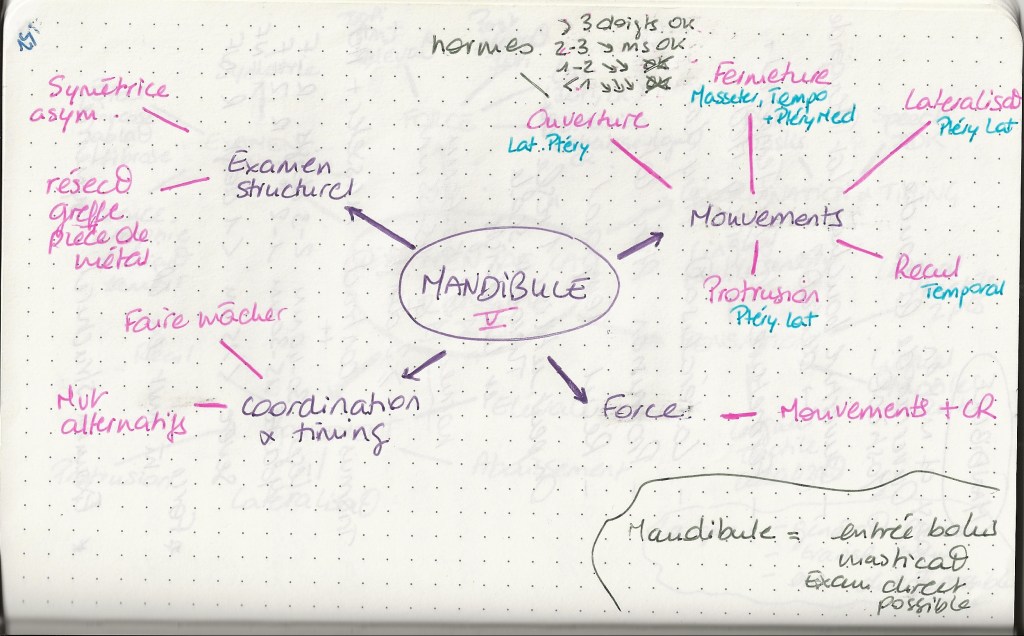 normes
> 3 doigts OK
2-3 ↘ ms OK
1-2 ↘↘ OK
<1 ↘↘↘ OK
Symétrice
asym.
Examen
structurel
résec∅
greffe
pièce de
métal
Ouverture
Lat. Ptéry
Fermeture
Masseter, Tempo
+ Ptéry Med
Lateralisa∅
Ptéry Lat
Mouvements
Protrusion
Ptéry. Lat
Recul
Temporal
MANDIBULE
V
Faire mâcher
Mvt
alternatifs
coordination
& timing
Force:
Mouvements + CR
Mandibule = entrée bolus
mastica∅
Exam direct
possible